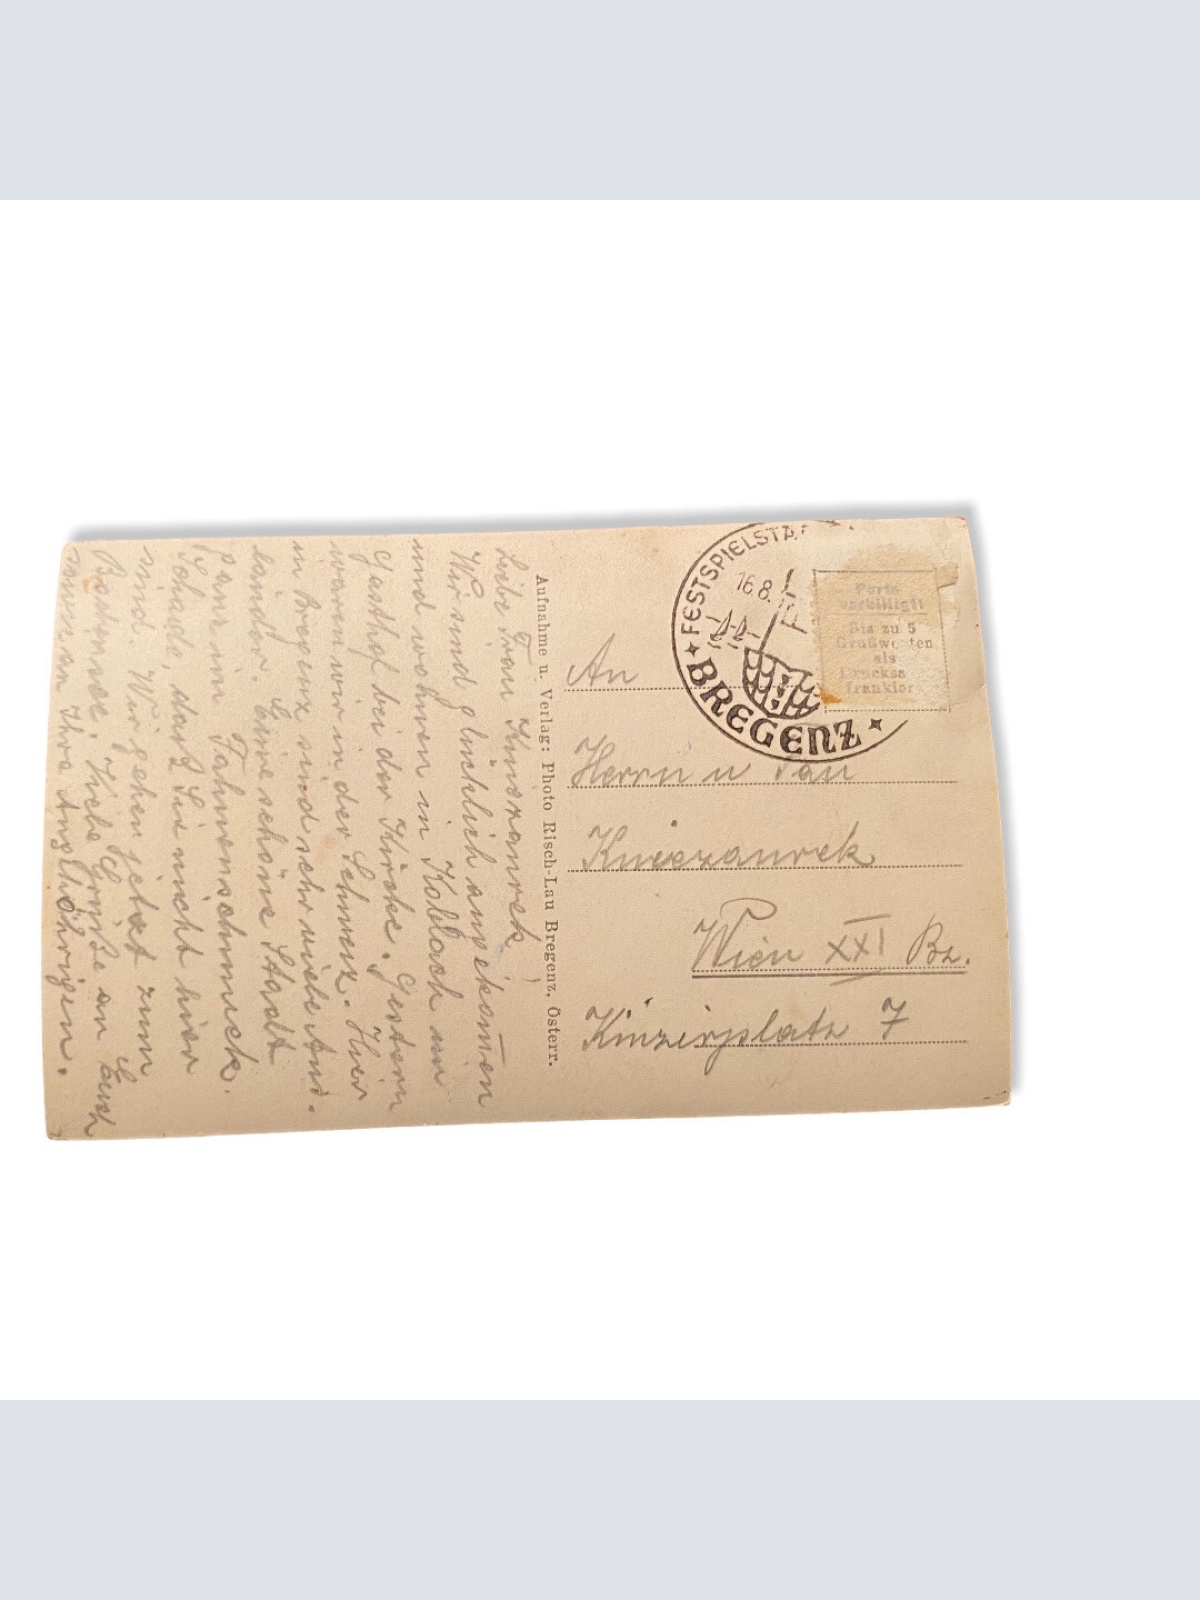 Liebe Frau
Wir sind glücklich angekom̄en
und wohnen in Koblach im
Gasthof bei der Kirche. Gestern
waren wir in der Schweiz. Hier
in Bregenz sind sehr viele Aus-
länder. Eine schöne Stadt
ganz im Fahnenschmuck.
Schade, daß Sie nicht hier
sind. Wir gehen jetzt zum
Bodensee. Liebe Grüße an Euch
von an Ihre Angehörigen.
Aufnahme u. Verlag: Photo Risch-Lau Bregenz, Österr.
FESTSPIELSTA
16.8.
BREGENZ
Porto
verbilligt!
Bis zu 5
Grußworten
als
Drucksa
frankier
An
Herrn u Frau
Kniezaurek
Wien XXI Bz.
Kinzerplatz 7